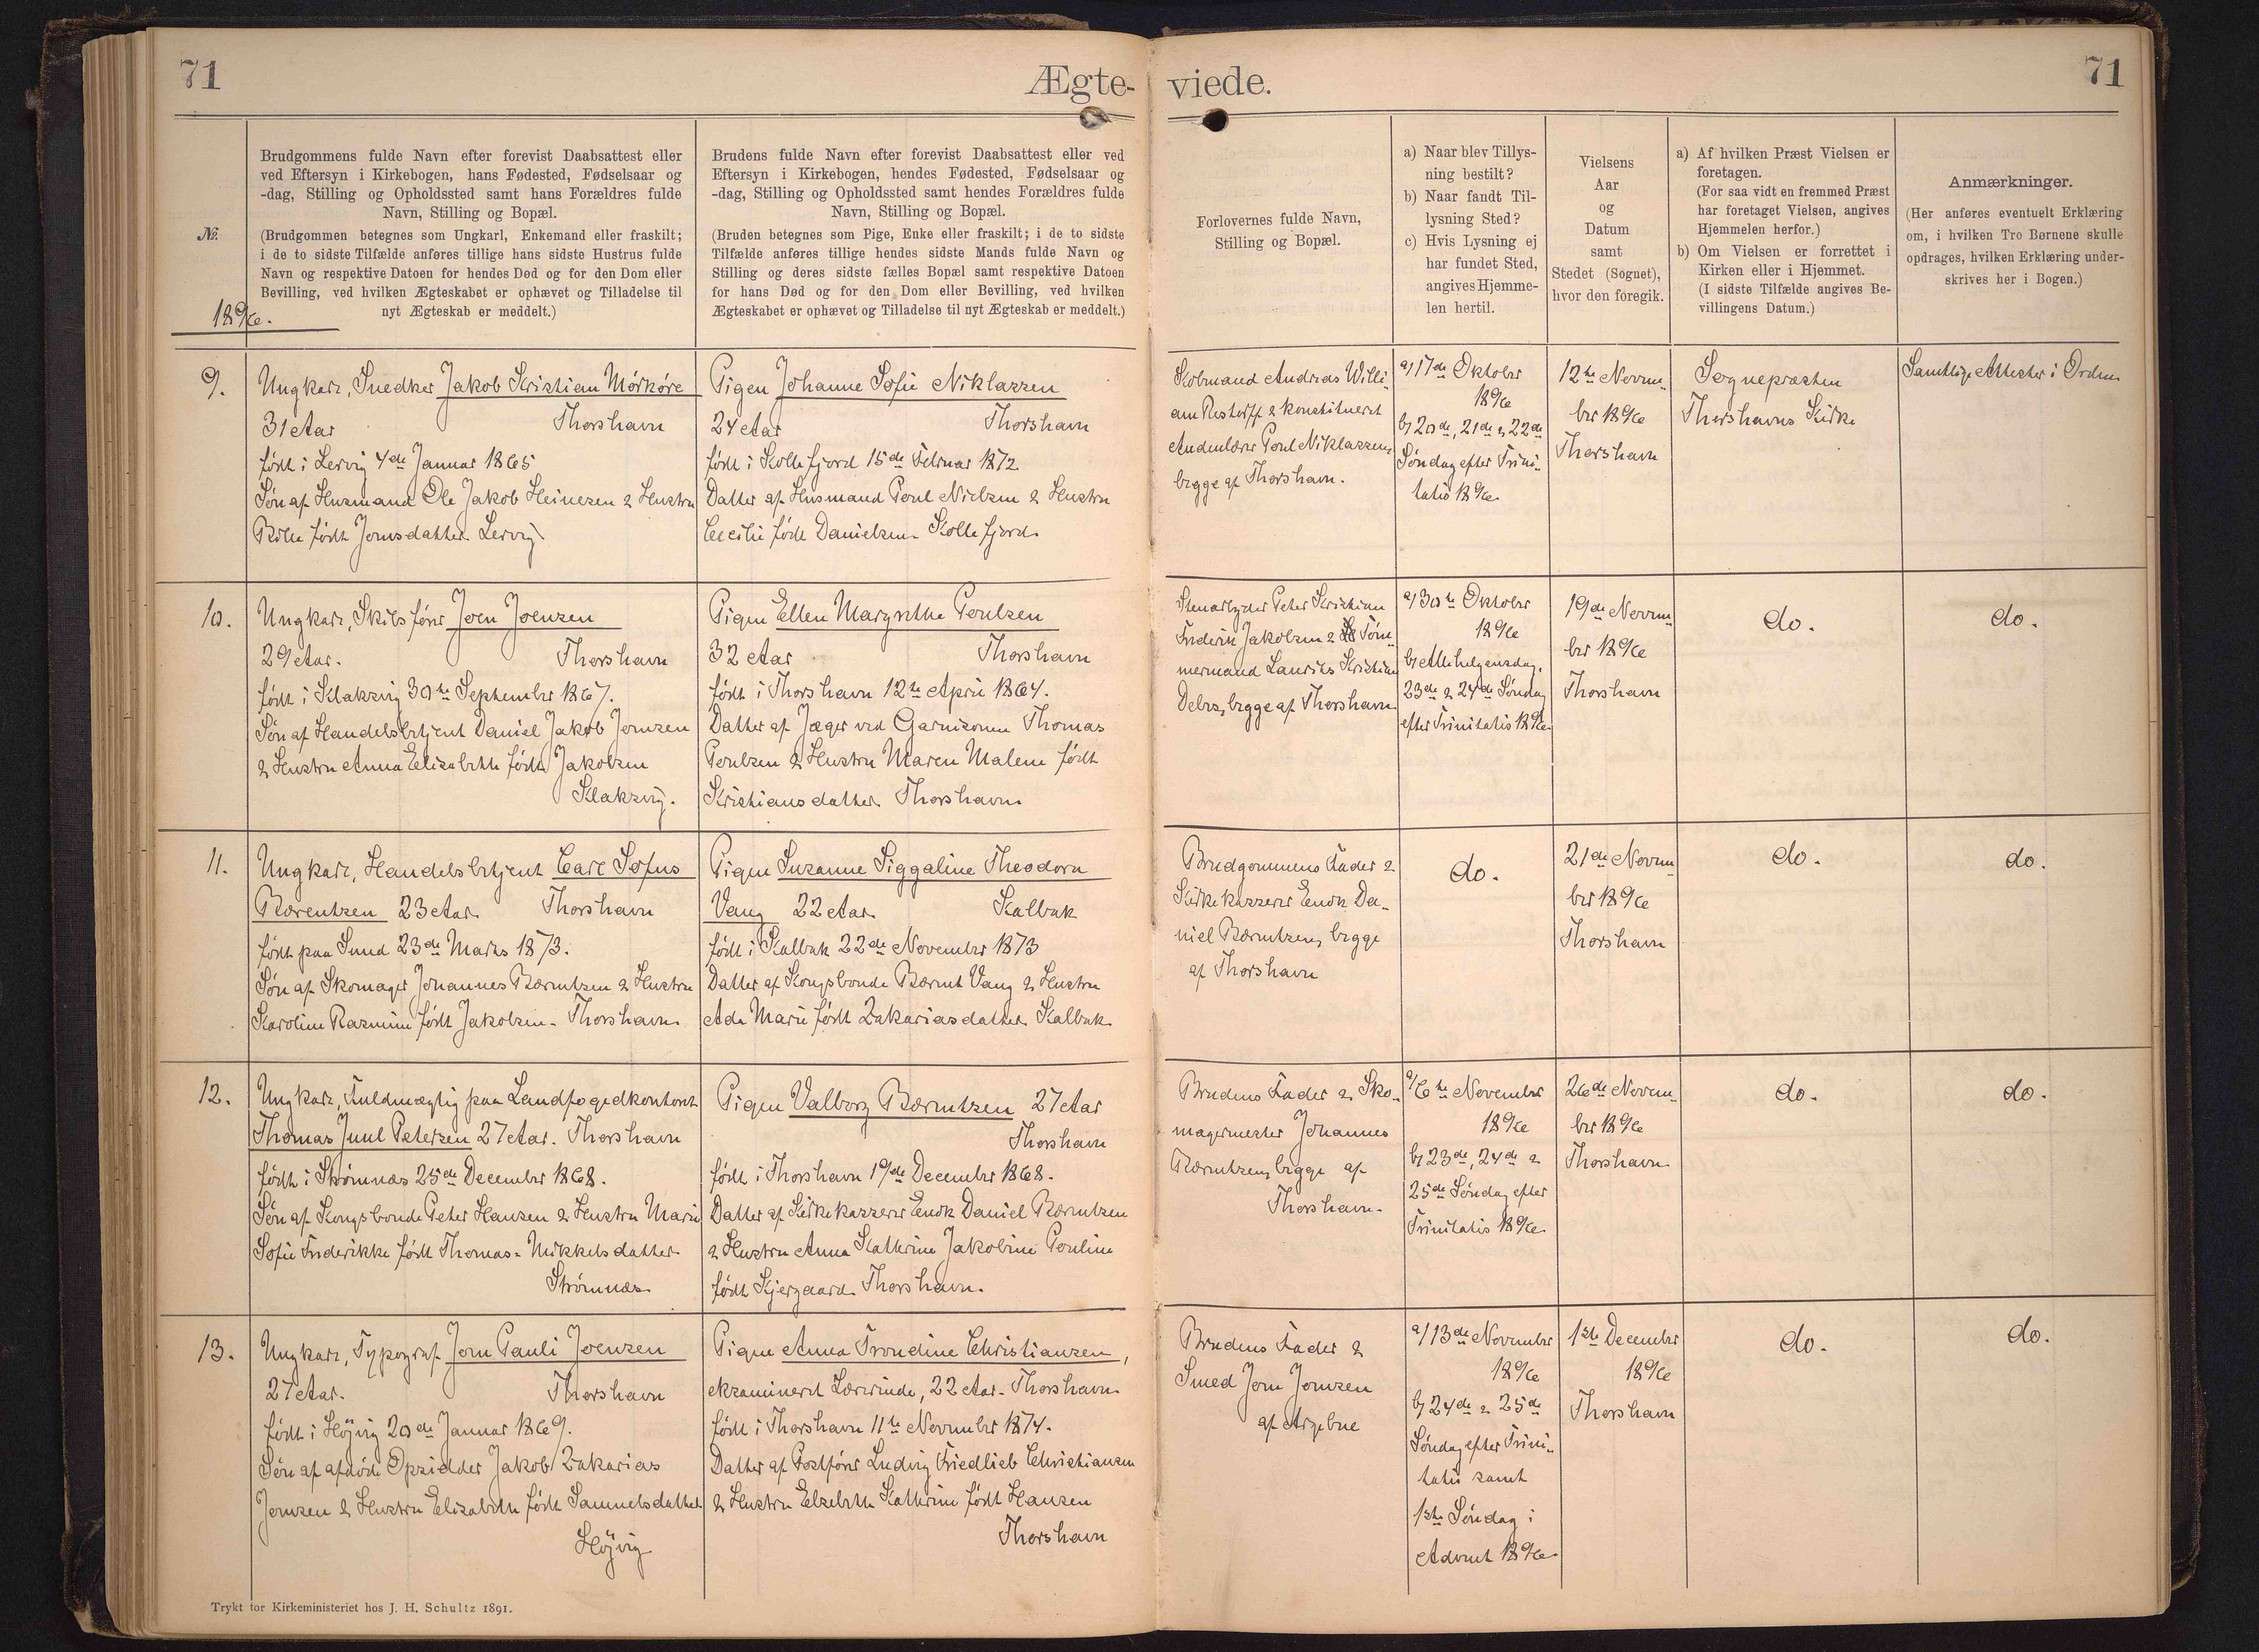 71
Ægte-
viede.
71
№.
1896.
Brudgommens fulde Navn efter forevist Daabsattest eller
ved Eftersyn i Kirkebogen, hans Fødested, Fødselsaar og
-dag, Stilling og Opholdssted samt hans Forældres fulde
Navn, Stilling og Bopæl.
(Brudgommen betegnes som Ungkarl, Enkemand eller fraskilt;
i de to sidste Tilfælde anføres tillige hans sidste Hustrus fulde
Navn og respektive Datoen for hendes Død og for den Dom eller
Bevilling, ved hvilken Ægteskabet er ophævet og Tilladelse til
nyt Ægteskab er meddelt.)
Brudens fulde Navn efter forevist Daabsattest eller ved
Eftersyn i Kirkebogen, hendes Fødested, Fødselsaar og
-dag, Stilling og Opholdssted samt hendes Forældres fulde
Navn, Stilling og Bopæl.
(Bruden betegnes som Pige, Enke eller fraskilt; i de to sidste
Tilfælde anføres tillige hendes sidste Mands fulde Navn og
Stilling og deres sidste fælles Bopæl samt respektive Datoen
for hans Død og for den Dom eller Bevilling, ved hvilken
Ægteskabet er ophævet og Tilladelse til nyt Ægteskab er meddelt.)
Forlovernes fulde Navn,
Stilling og Bopæl.
a) Naar blev Tillys-
ning bestilt?
b) Naar fandt Til-
lysning Sted?
c) Hvis Lysning ej
har fundet Sted,
angives Hjemme-
len hertil.
Vielsens
Aar
og
Datum
samt
Stedet (Sognet),
hvor den foregik.
a) Af hvilken Præst Vielsen er
foretagen.
(For saa vidt en fremmed Præst
har foretaget Vielsen, angives
Hjemmelen herfor.)
b) Om Vielsen er forrettet i
Kirken eller i Hjemmet.
(I sidste Tilfælde angives Be-
villingens Datum.)
Anmærkninger.
(Her anføres eventuelt Erklæring
om, i hvilken Tro Børnene skulle
opdrages, hvilken Erklæring under-
skrives her i Bogen.)
9.
Ungkarl, Snedker Jakob Kristian Mórkóre
31 Aar Thorshavn
født i Lervig 4de Januar 1865
Søn af Husmand Ole Jakob Heinesen & Hustru
Billa født Jonsdatter Lervig
Pigen Johanne Sofie Niklassen
24 Aar Thorshavn
født i Kollefjord 15de Februar 1872.
Datter af Husmand Poul Nielsen & Hustru
Cecilie født Danielsen. Kollefjord.
Købmand Andreas Willi-
am Restorff & konstitueret
Andenlærer Poul Niklassen,
begge af Thorshavn.
a) 17de Oktober
1896
b) 20de, 21de & 22de
Søndag efter Trini-
tatis 1896.
12te Novem-
ber 1896
Thorshavn
Sognepræsten
Thorshavns Kirke
Samtlige Attester i Orden
10.
Ungkarl, Skibsfører Joen Joensen
29 Aar. Thorshavn
født i Klaksvig 30te September 1867.
Søn af Handelsbetjent Daniel Jakob Joensen
& Hustru Anna Elisabeth født Jakobsen
Klaksvig.
Pigen Ellen Margrethe Poulsen
32 Aar Thorshavn
født i Thorshavn 12te April 1864.
Datter af Jæger ved Garnisonen Thomas
Poulsen & Hustru Maren Malene født
Kristiansdatter. Thorshavn.
Stenarbejder Peter Kristian
Frederik Jakobsen & Tøm-
mermand Laurits Kristian
Debes, begge af Thorshavn
a) 30te Oktober
1896
b) Allehelgensdag,
23de & 24de Søndag
efter Trinitatis 1896.
19de Novem-
ber 1896
Thorshavn
do.
do.
11.
Ungkarl, Handelsbetjent Carl Sofus
Bærentsen 23 Aar. Thorshavn
født paa Sund 23de Marts 1873.
Søn af Skomager Johannes Bærentsen & Hustru
Karoline Rasmine født Jakobsen. Thorshavn.
Pigen Susanne Siggaline Theodora
Vang 22 Aar. Kalbak
født i Kalbak 22de November 1873
Datter af Kongsbonde Bærent Vang & Hustru
Ada Marie født Zakariasdatter. Kalbak.
Brudgommens Fader &
Kirkekasserer Enok Da-
niel Bærentsen, begge
af Thorshavn
do.
21de Novem-
ber 1896
Thorshavn
do.
do.
12.
Ungkarl, Fuldmægtig paa Landfogedkontoret
Thomas Juul Petersen 27 Aar. Thorshavn
født i Strømnæs 25de December 1868.
Søn af Kongsbonde Peter Hansen & Hustru Marie
Sofie Frederikke født Thomas-Mikkelsdatter.
Strømnæs.
Pigen Valborg Bærentsen 27 Aar
Thorshavn
født i Thorshavn 19de December 1868.
Datter af Kirkekasserer Enok Daniel Bærentsen
& Hustru Anna Kathrine Jakobine Pouline
født Kjergaard. Thorshavn.
Brudens Fader & Sko-
magermester Johannes
Bærentsen, begge af
Thorshavn.
a) 6te November
1896
b) 23de, 24de &
25de Søndag efter
Trinitatis 1896.
26de Novem-
ber 1896
Thorshavn.
do.
do.
13.
Ungkarl, Typograf Jom Pauli Joensen
27 Aar. Thorshavn
født i Højvig 20de Januar 1869.
Søn af afdøde Opsidder Jakob Zakarias
Joensen & Hustru Elisabeth født Samuelsdatter
Højvig
Pigen Anna Trondine Christiansen,
eksamineret Lærerinde, 22 Aar. Thorshavn.
født i Thorshavn 11te November 1874.
Datter af Postfører Ludvig Friedlieb Christiansen
& Hustru Elsebeth Kathrine født Hansen
Thorshavn
Brudens Fader &
Smed Jom Jomsen
af Argebue
a) 13de November
1896
b) 24de & 25de
Søndag efter Trini-
tatis samt
1ste Søndag i
Advent 1896.
1ste December
1896
Thorshavn
do.
do.
Trykt for Kirkeministeriet hos J. H. Schultz 1891.